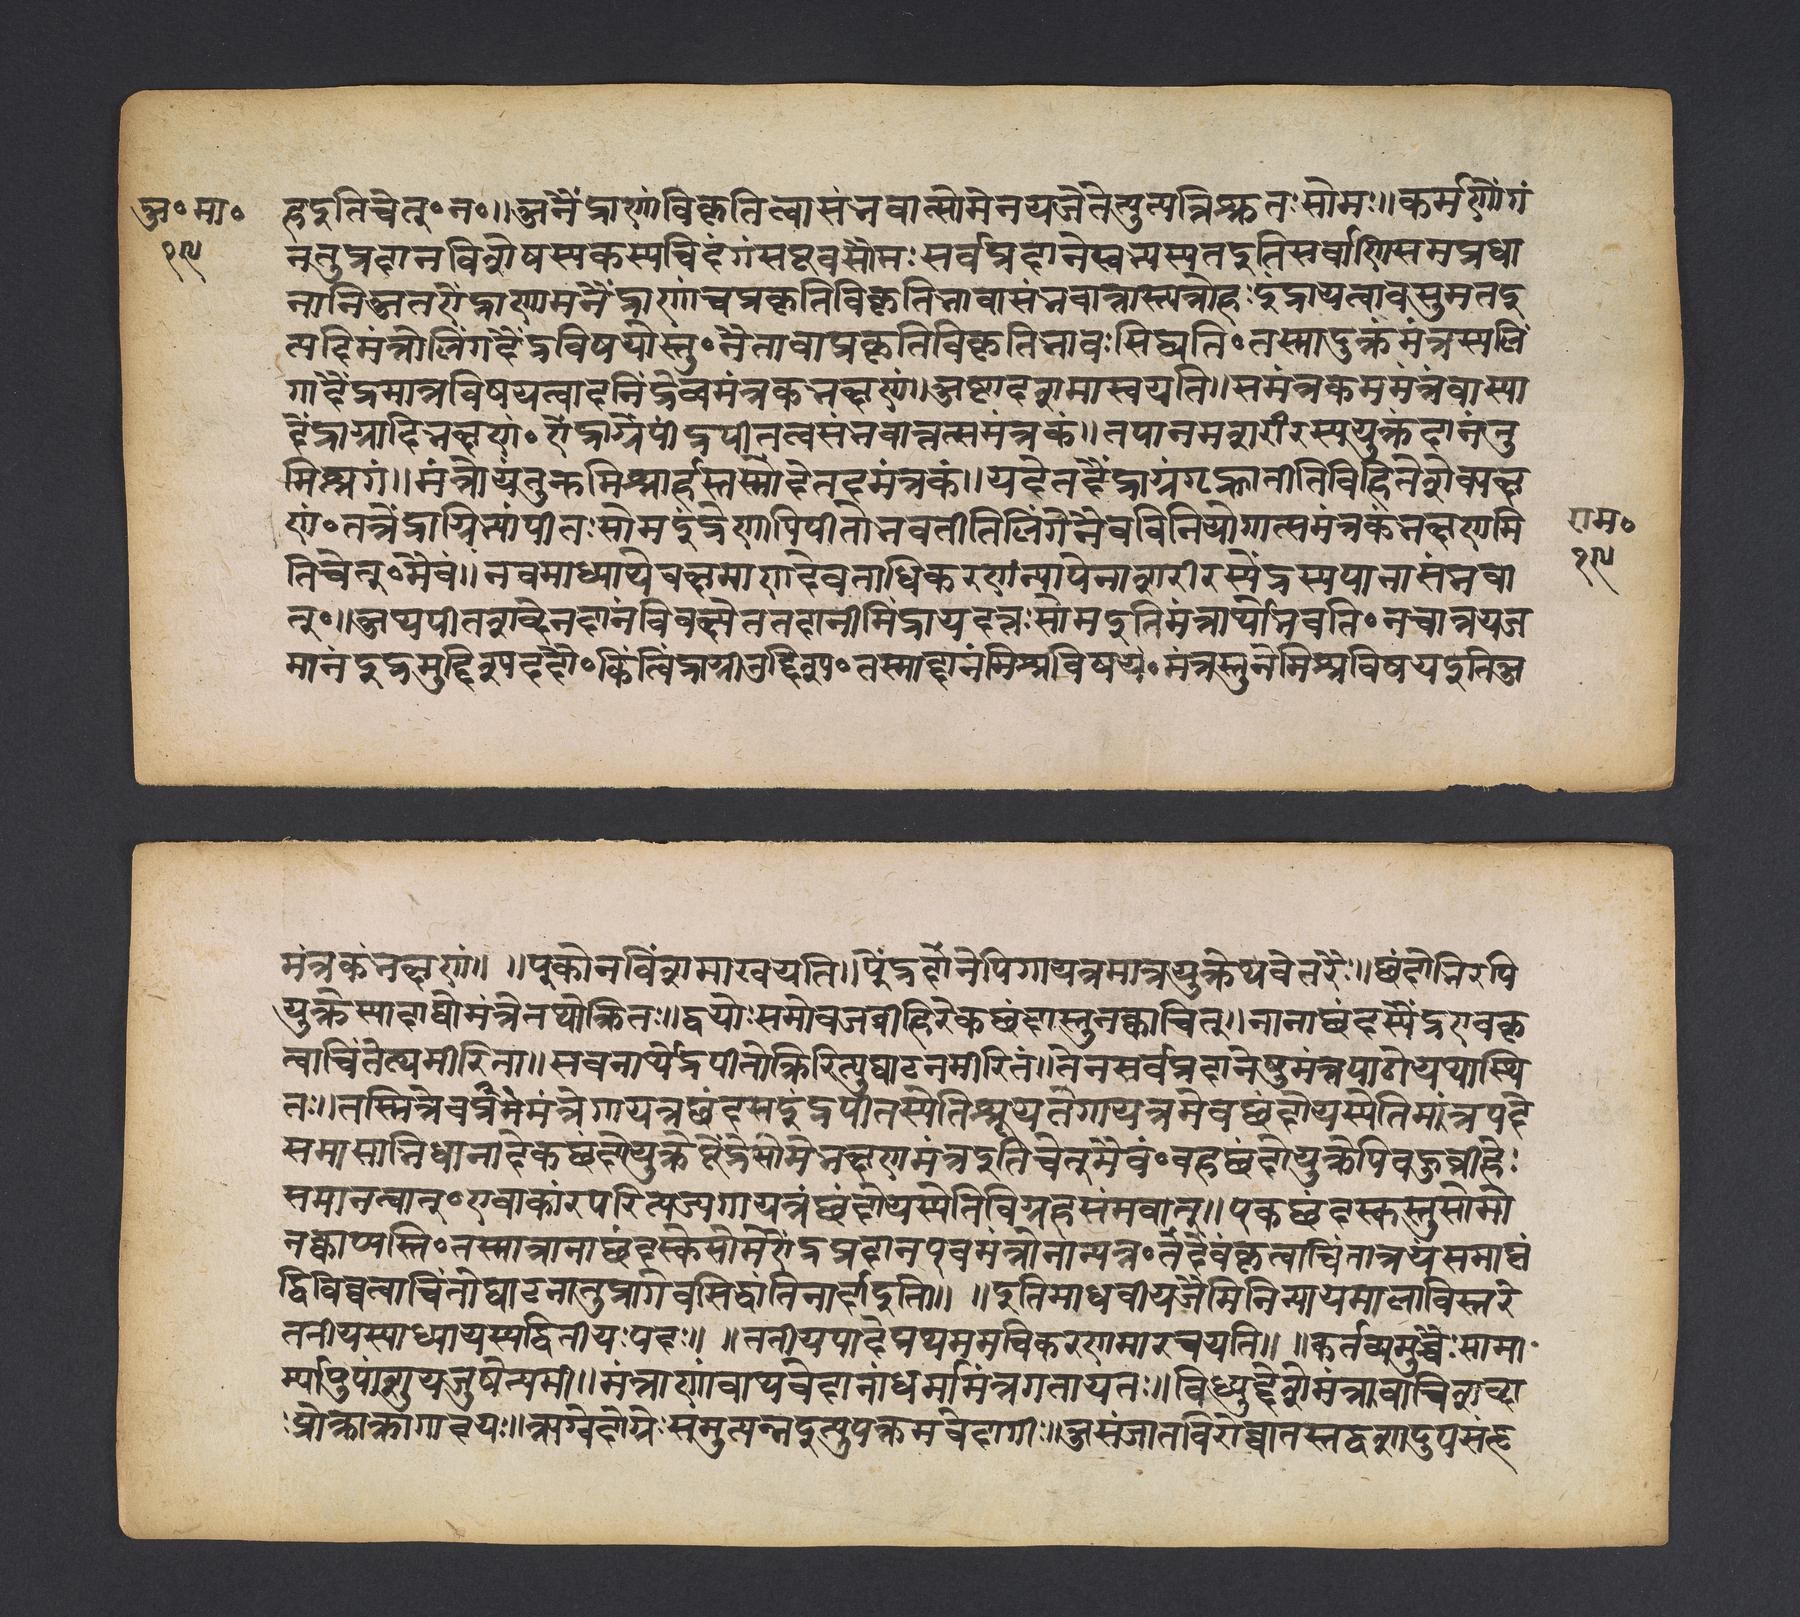 अ॰मा॰
१९
हइतिचेत्॰न॰॥अनैंद्राणांविकृतित्वासंभवात्सोमेनयजेतेत्युत्पत्तिश्रुतः सोमः॥कर्मणोंगं
नतुप्रदानविशेषस्यकस्यचिदंगंसएवसोमः सर्वप्रदानेष्वभ्यस्यतइतिसर्वाणिसमप्रधा
नानिअतऐंद्राणामनैंद्राणांचप्रकृतिविकृतिभावासंभवान्नास्त्यत्रोहःइंद्रायत्वावसुमतइ
त्यादिमंत्रोलिंगादैंद्रविषयोस्तु॰नैतावाप्रकृतिविकृतिभावः सिध्यति॰तस्मादुक्तमंत्रस्यलिं
गादैंद्रमात्रविषयत्वादनिंद्रेष्वमंत्रकंभक्षणं॥अष्टादशमास्वयति॥समंत्रकममंत्रंवास्या
दैंद्राग्नादिभक्षणं॰ऐंद्राग्नेपींद्रपीतत्वसंभवात्तत्समंत्रकं॥तपानमशरीरस्ययुक्तंदानंतु
मिश्रगं॥मंत्रोयंतुकमिश्रार्हस्तस्मादेतदमंत्रकं॥यदेतदैंद्राग्नंगृह्णातीतिविहितेशेषभक्ष
णं॰तत्रेंद्राग्निभ्यांपीतः सोमइंद्रेणापिपीतोभवतीतिलिंगेनैवविनियोगात्समंत्रकंभक्षणमि
तिचेत्॰मैवं॥नवमाध्यायेवक्ष्यमाणदेवताधिकरणन्यायेनाशरीरस्येंद्रस्यपानासंभवा
त्॰॥अथपीतशब्देनदानंविवक्ष्येततदानीमिंद्रायदत्तः सोमइतिमंत्रार्थोभवति॰नचात्रयज
मानंइंद्रमुद्दिश्यददौ॰किंत्विंद्राग्नीउद्दिश्य॰तस्माद्दानंमिश्रविषयं॰मंत्रस्तुनमिश्रविषयइतिअ
राम॰
१९
मंत्रकंभक्षणं॥ ॥एकोनविंशमारचयति॥ऐंद्रदानेपिगायत्रमात्रयुक्तेथवेतरैः॥छंदोभिरपि
युक्तेस्यादाद्योमंत्रेतथोक्तितः॥द्वयोः समोबहुव्रीहिरेकछंदास्तुनक्वाचित्॥नानाछंदस्यैंद्रएवकृ
त्वाचिंतेत्थमीरिता॥सवनार्थेंद्रपीतोक्तिरित्युद्घाटनमीरितं॥तेनसर्वप्रदानेषुमंत्रपाठोयथास्थि
तः॥तस्मिन्नेवप्रथमेमंत्रेगायत्रछंदसइंद्रपीतस्येतिश्रूयतेगायत्रमेवछंदोयस्येतिमंत्रपदे
समासाभिधानादेकछंदोयुक्तेऐंद्रेसोमेभक्षणमंत्रइतिचेत्मैवं॰बहुछंदोयुक्तेपिबहुव्रीहेः
समानत्वात्॰एवाकारंपरित्यज्यगायत्रंछंदोयस्येतिविग्रहसंभवात्॥एकछंदस्कस्तुसोमो
नक्वाप्यस्ति॰तस्मान्नानाछंदस्केसोमेऐंद्रप्रदानएवमंत्रोनान्यत्र॰तदेवंकृत्वाचिंतात्रयंसमाप्तं
द्विविधत्वाचिंतोद्घाटनातुप्रागेवसिद्धांतिनादर्शइति॥ ॥इतिमाधवीयजैमिनिन्यायमालाविस्तरे
ततीयस्याध्यायस्यद्वितीयः पादः॥ ॥ततीयपादेप्रथममधिकरणमारचयति॥ ॥कर्तव्यमुच्चैः सामा
र्ग्भ्यामुपांशुयजुषेत्यमी॥मंत्राणांवाथवेदानांधर्मामंत्रगतायतः॥विध्युद्देशेमंत्रावाचिशब्दा
प्रोक्ताक्रागादयः॥ऋग्वेदोग्नेः समुत्पन्नइत्युपक्रमवेदगीः॥असंजातविरोध्वातस्तद्वशाउपसंहृ